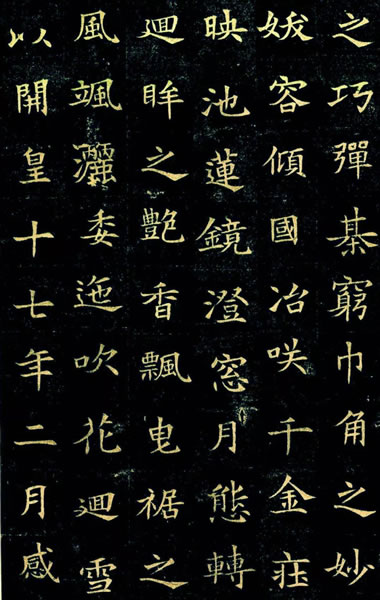 之巧彈棊窮巾角之妙
妭容傾國冶咲千金㽵
映池蓮鏡澄窓月態轉
迴眸之艷香飄曳裾之
風颯灑委迤吹花迴雪
以開皇十七年二月感